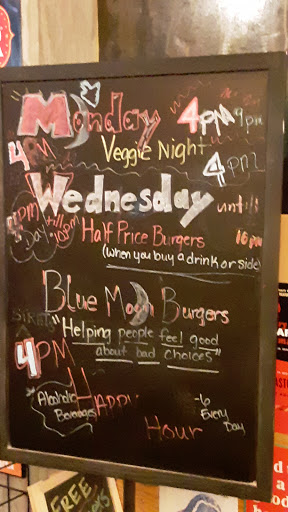 Monday 4pm 9pm
4PM Veggie Night
4pm
Wednesday until
4pm till 10pm
Day Half Price Burgers 10pm
(when you buy a drink or side)
Blue Moon Burgers
"Helping people feel good
about bad choices"
4PM
Alcoholic
Beverages
Happy
Hour
-6
Every
Day
FREE